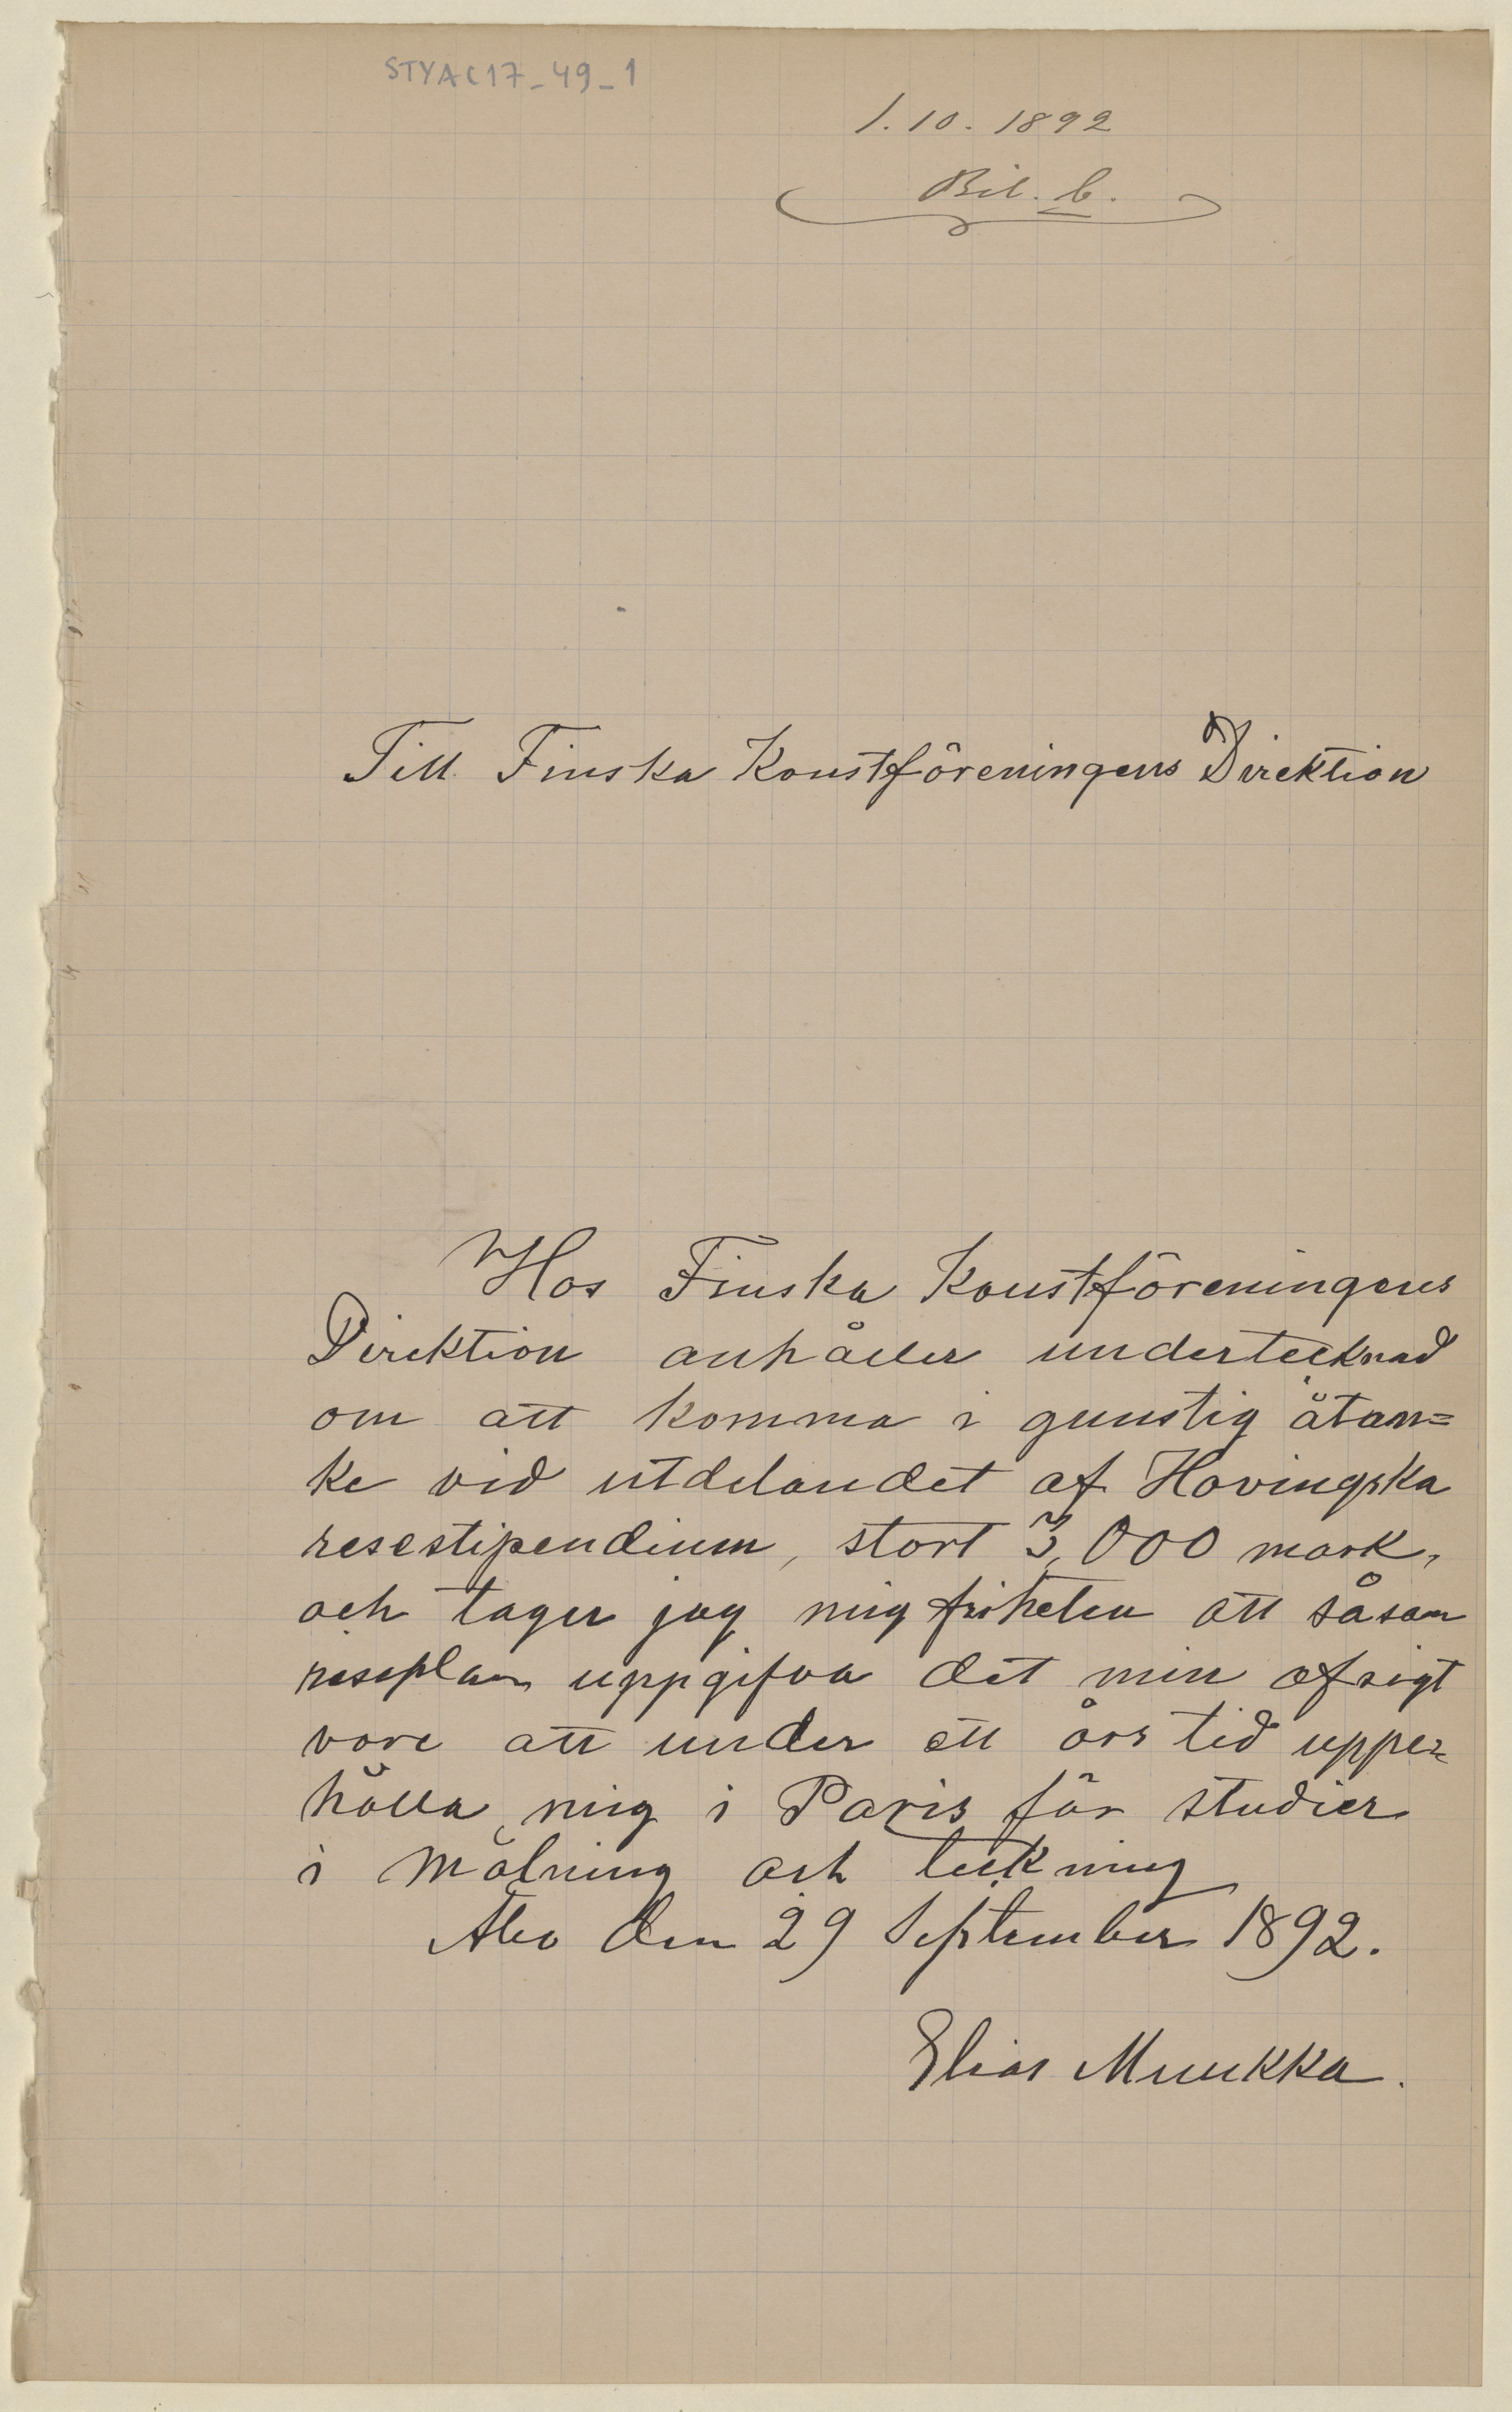 STYAC17_49_1
1.10.1892
Bil. b.
Till Finska Konstföreningens Direktion
Hos Finska Konstföreningens
Direktion anhåller undertecknad
om att komma i gunstig åtan=
ke vid utdelandet af Hovingska
resestipendium, stort 3,000 mark,
och tager jag mig friheten att såsom
reseplan uppgifva det min afsigt
vore att under ett års tid uppe=
hålla mig i Paris för studier
i målning och teckning
Åbo den 29 September 1892.
Elias Muukka.